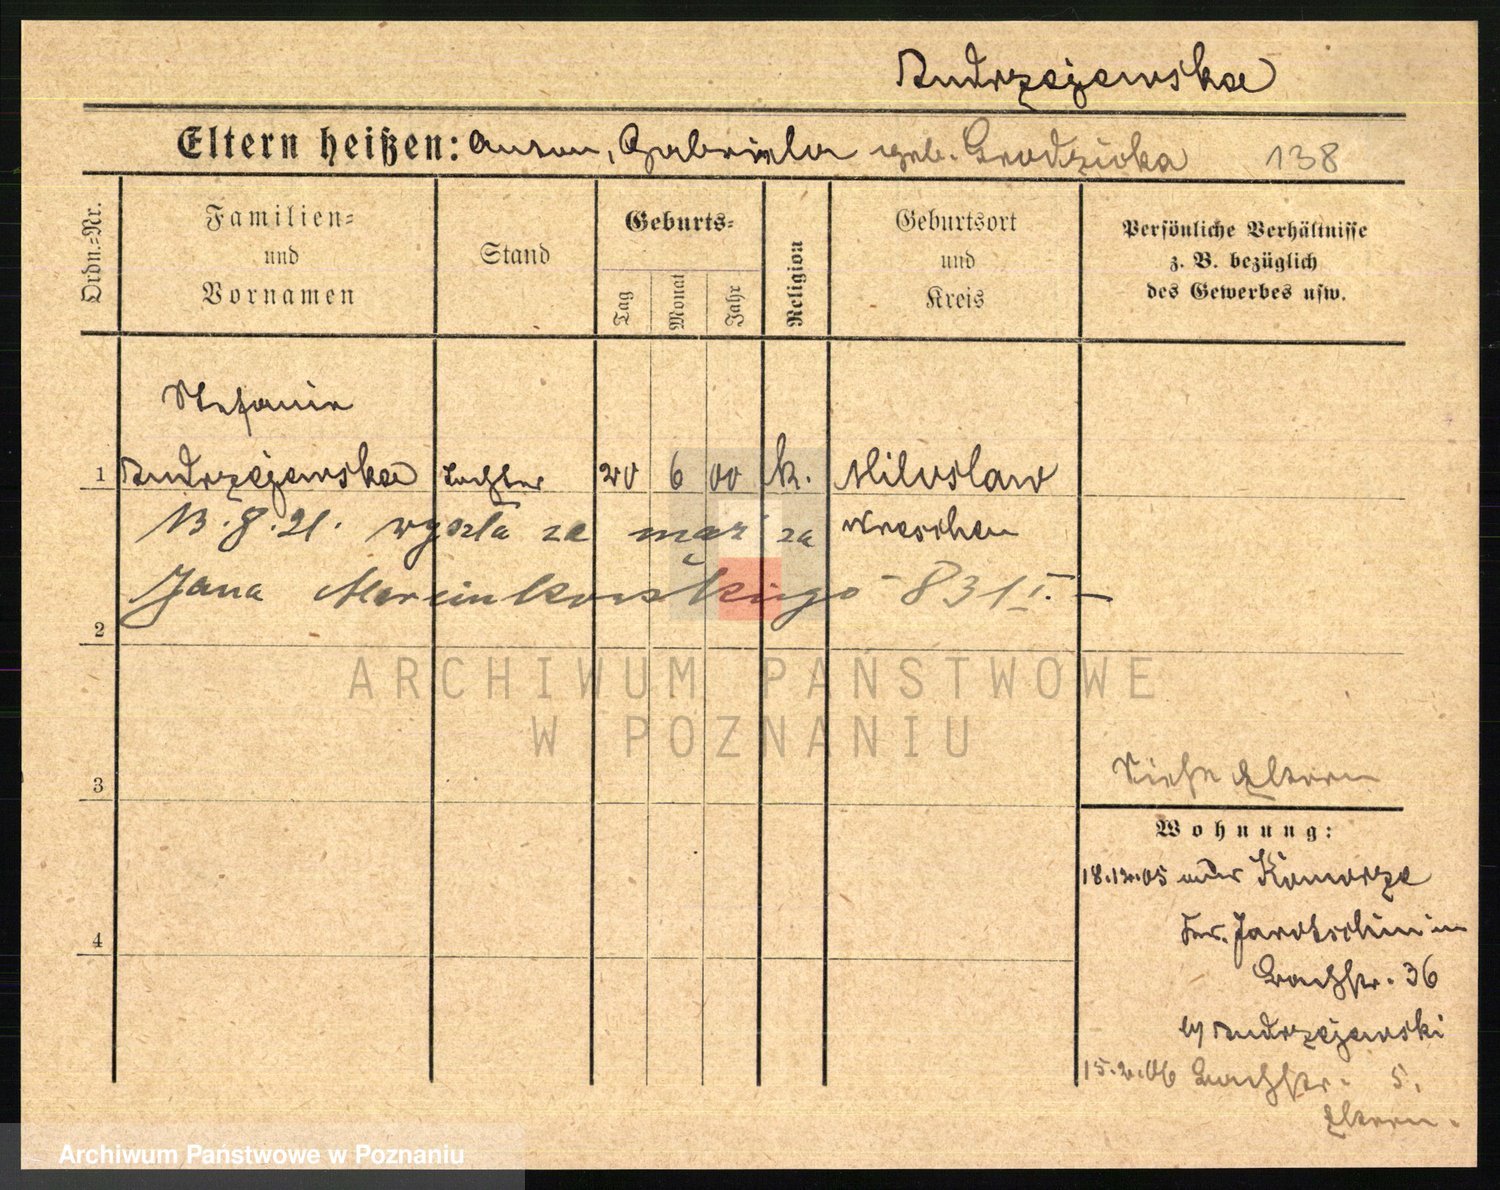 Andrzejewska
Eltern heißen: Anton, Gabriela geb. Grodzicka 138
Ordn.=Nr.
Familien= und Vornamen
Stand
Geburts=
Tag
Monat
Jahr
Religion
Geburtsort und Kreis
Persönliche Verhältnisse z. B. bezüglich des Gewerbes usw.
Stefanie
1 Andrzejewska Tochter 20 6 00 k. Miloslaw
13.8.21. wyszła za mąż za Wreschen
Jana Marcinkowskiego 831 I. —
2
ARCHIWUM PAŃSTWOWE
W POZNANIU
3
Siehe Eltern
Wohnung:
18.12.05 aus Komorze
Kr. Jarotschin in
Bachstr. 36
b/ Andrzejewski
4
15.2.06 Bachstr. 5.
Eltern.
Archiwum Państwowe w Poznaniu